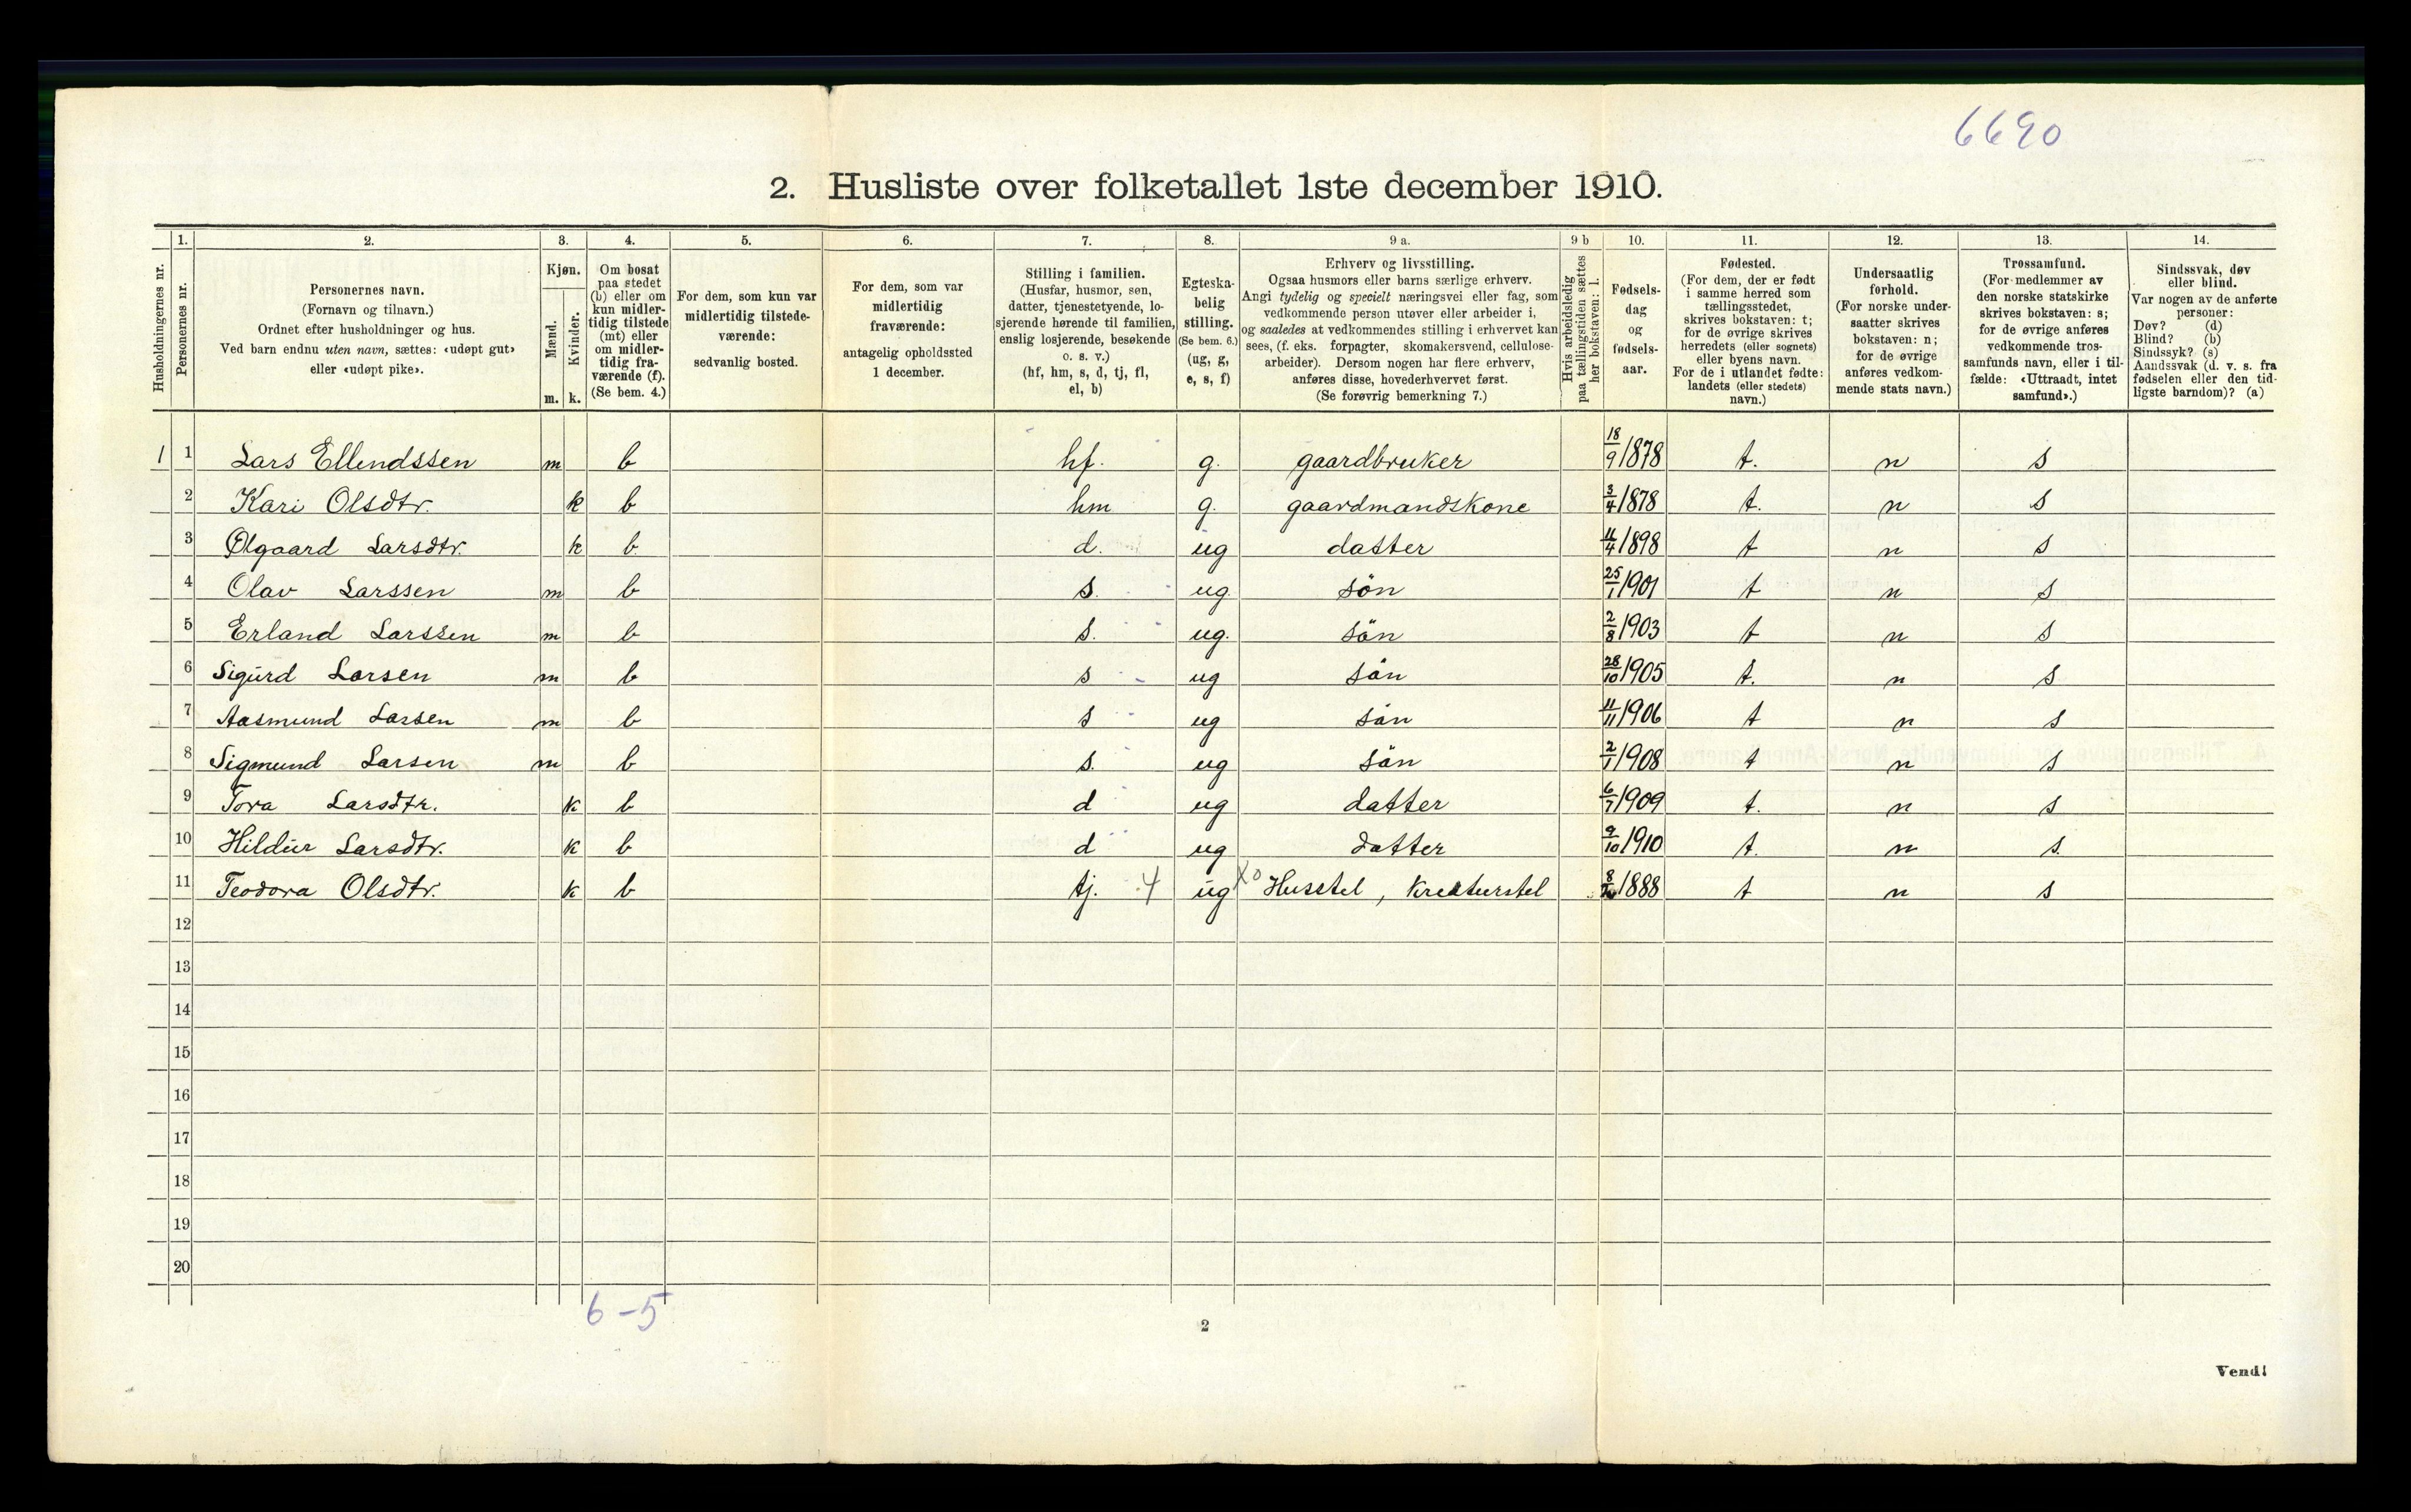 6690
2. Husliste over folketallet 1ste december 1910.
Husholdningernes nr.
1.
Personernes nr.
2.
Personernes navn.
(Fornavn og tilnavn.)
Ordnet efter husholdninger og hus.
Ved barn endnu uten navn, sættes: «udøpt gut»
eller «udøpt pike».
3.
Kjøn.
Mænd.
Kvinder.
m. k.
4.
Om bosat
paa stedet
(b) eller om
kun midler-
tidig tilstede
(mt) eller
om midler-
tidig fra-
værende (f).
(Se bem. 4.)
5.
For dem, som kun var
midlertidig tilstede-
værende:
sedvanlig bosted.
6.
For dem, som var
midlertidig
fraværende:
antagelig opholdssted
1 december.
7.
Stilling i familien.
(Husfar, husmor, søn,
datter, tjenestetyende, lo-
sjerende hørende til familien,
enslig losjerende, besøkende
o. s. v.)
(hf, hm, s, d, tj, fl,
el, b)
8.
Egteska-
belig
stilling.
(Se bem. 6.)
(ug, g,
e, s, f)
9 a.
Erhverv og livsstilling.
Ogsaa husmors eller barns særlige erhverv.
Angi tydelig og specielt næringsvei eller fag, som
vedkommende person utøver eller arbeider i,
og saaledes at vedkommendes stilling i erhvervet kan
sees, (f. eks. forpagter, skomakersvend, cellulose-
arbeider). Dersom nogen har flere erhverv,
anføres disse, hovederhvervet først.
(Se forøvrig bemerkning 7.)
9 b
Hvis arbeidsledig
paa tællingstiden sættes
her bokstaven: l.
10.
Fødsels-
dag
og
fødsels-
aar.
11.
Fødested.
(For dem, der er født
i samme herred som
tællingsstedet,
skrives bokstaven: t;
for de øvrige skrives
herredets (eller sognets)
eller byens navn.
For de i utlandet fødte:
landets (eller stedets)
navn.)
12.
Undersaatlig
forhold.
(For norske under-
saatter skrives
bokstaven: n;
for de øvrige
anføres vedkom-
mende stats navn.)
13.
Trossamfund.
(For medlemmer av
den norske statskirke
skrives bokstaven: s;
for de øvrige anføres
vedkommende tros-
samfunds navn, eller i til-
fælde: «Uttraadt, intet
samfund».)
14.
Sindssvak, døv
eller blind.
Var nogen av de anførte
personer:
Døv? (d)
Blind? (b)
Sindssyk? (s)
Aandssvak (d. v. s. fra
fødselen eller den tid-
ligste barndom)? (a)
1 1 Lars Ellendssen m b hf. g. gaardbruker 18/9 1878 t. n s
2 Kari Olsdtr. k b hm g. gaardmandskone 3/4 1878 t. n s
3 Olgaard Larsdtr. k b d. ug datter 11/4 1898 t n s
4 Olav Larssen m b s. ug sön 25/1 1901 t n s
5 Erland Larssen m b s. ug. sön 2/8 1903 t n s
6 Sigurd Larsen m b s ug sön 28/10 1905 t. n s
7 Aasmund Larsen m b s ug sön 11/11 1906 t n s
8 Sigmund Larsen m b s. ug sön 2/1 1908 t n s
9 Tora Larsdtr. k b d ug datter 6/7 1909 t. n s
10 Hildur Larsdtr. k b d ug datter 9/10 1910 t. n s.
11 Teodora Olsdtr. k b tj. 4 ug X0 Husstel, Kreaturstel 1888 t n s
12
13
14
15
16
17
18
19
20
6-5
2
Vend!